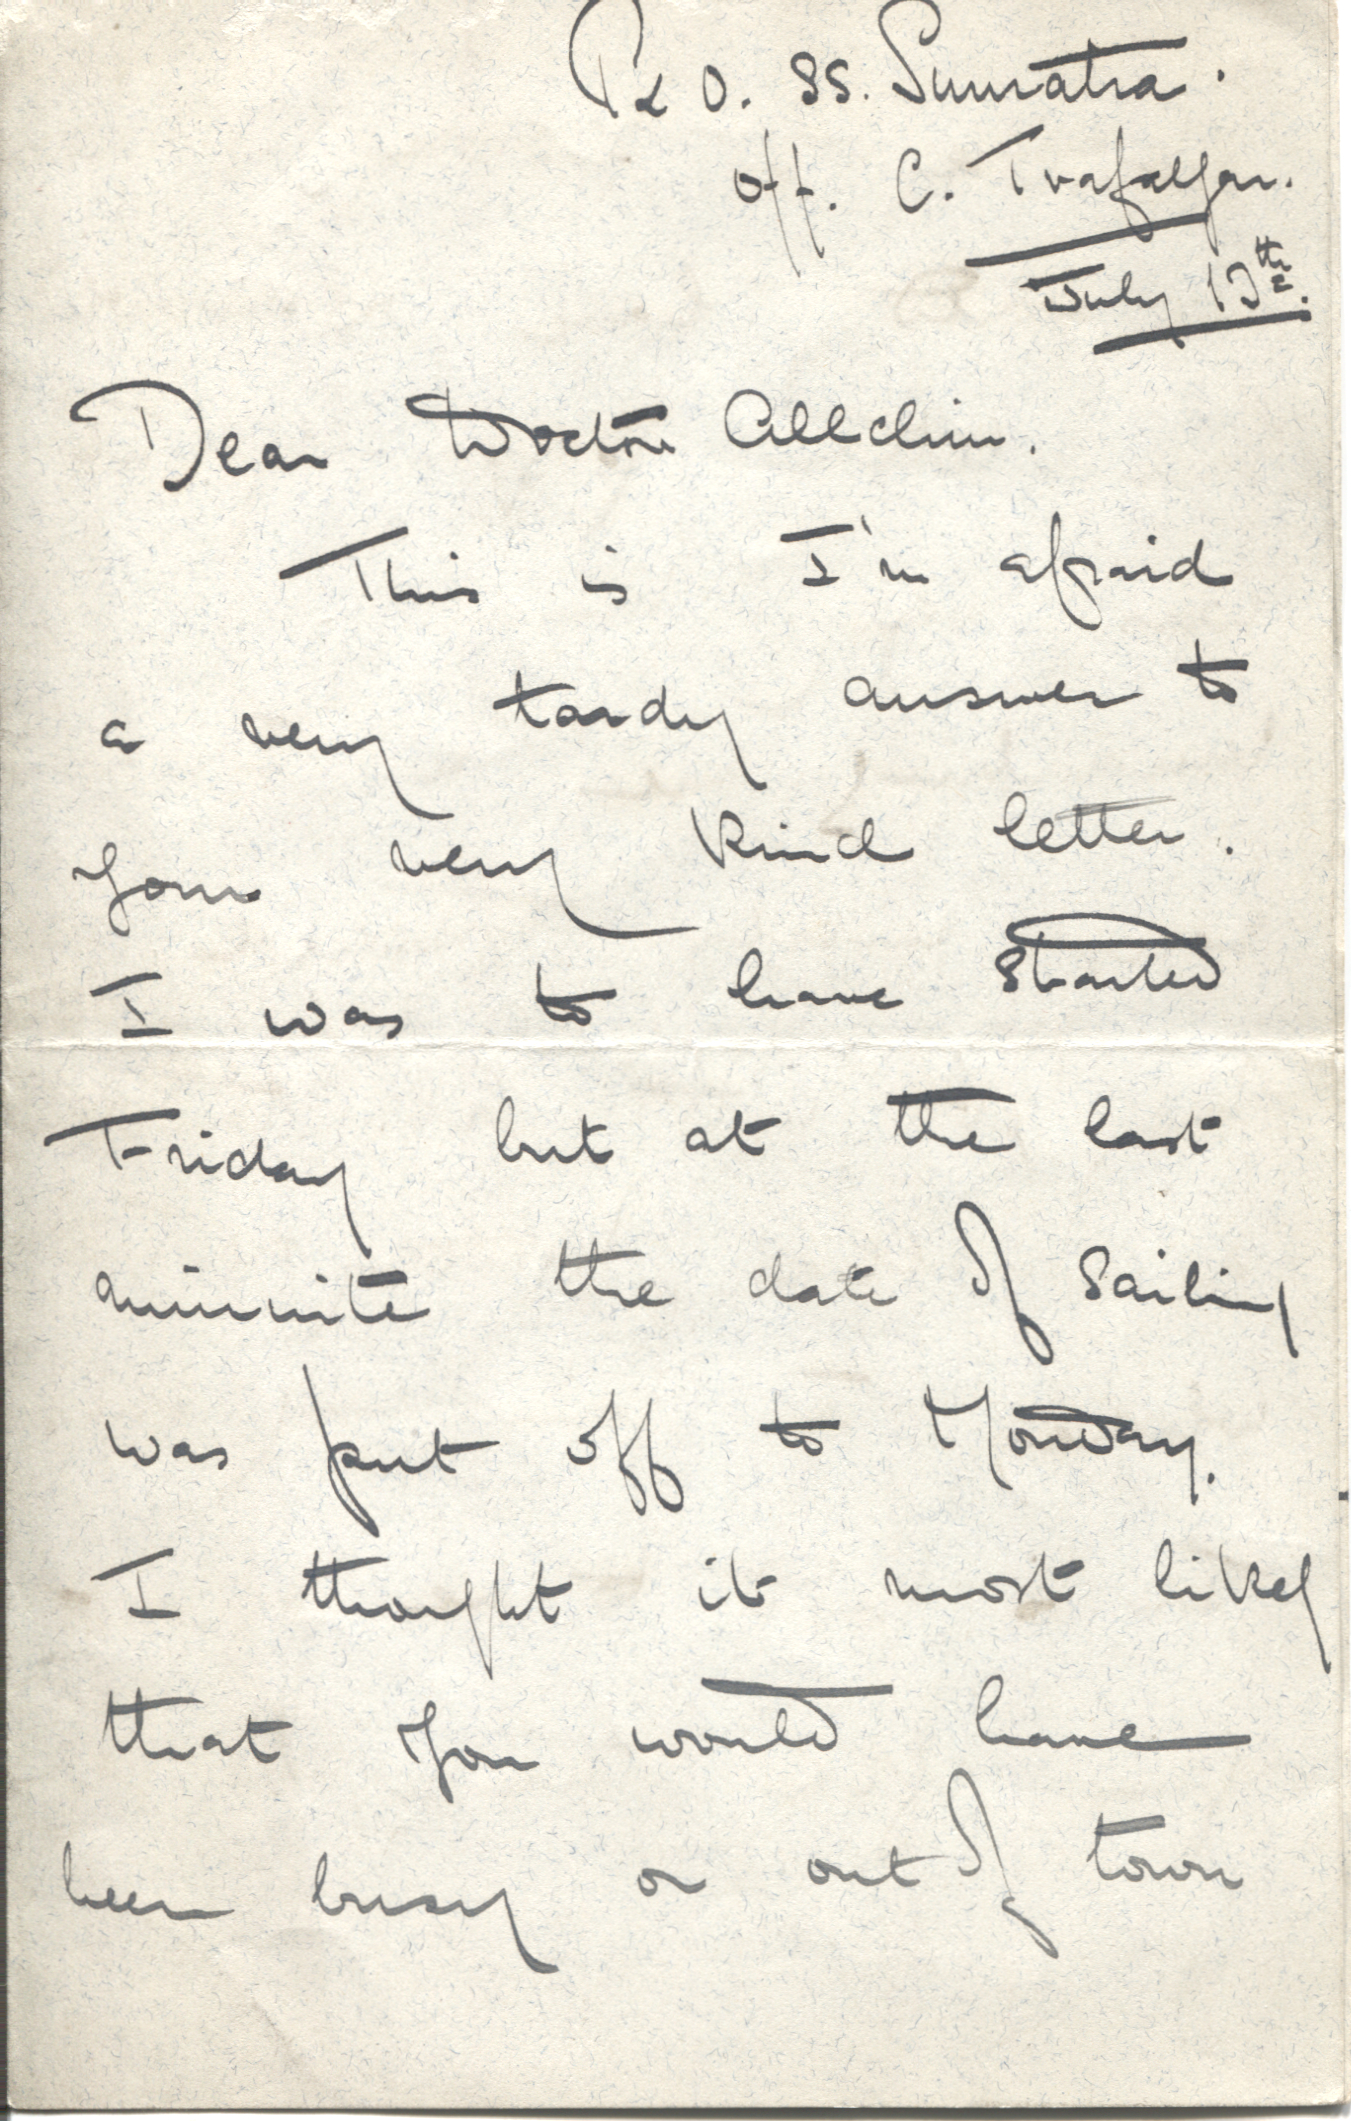 P & O. SS. Sumatra.
off. C. Trafalgar.
July 12th.
Dear Doctor Allchin.
This is I'm afraid
a very tardy answer to
your very kind letter.
I was to have started
Friday but at the last
minute the date of sailing
was put off to Monday.
I thought it most likely
that you would have
been busy or out of town